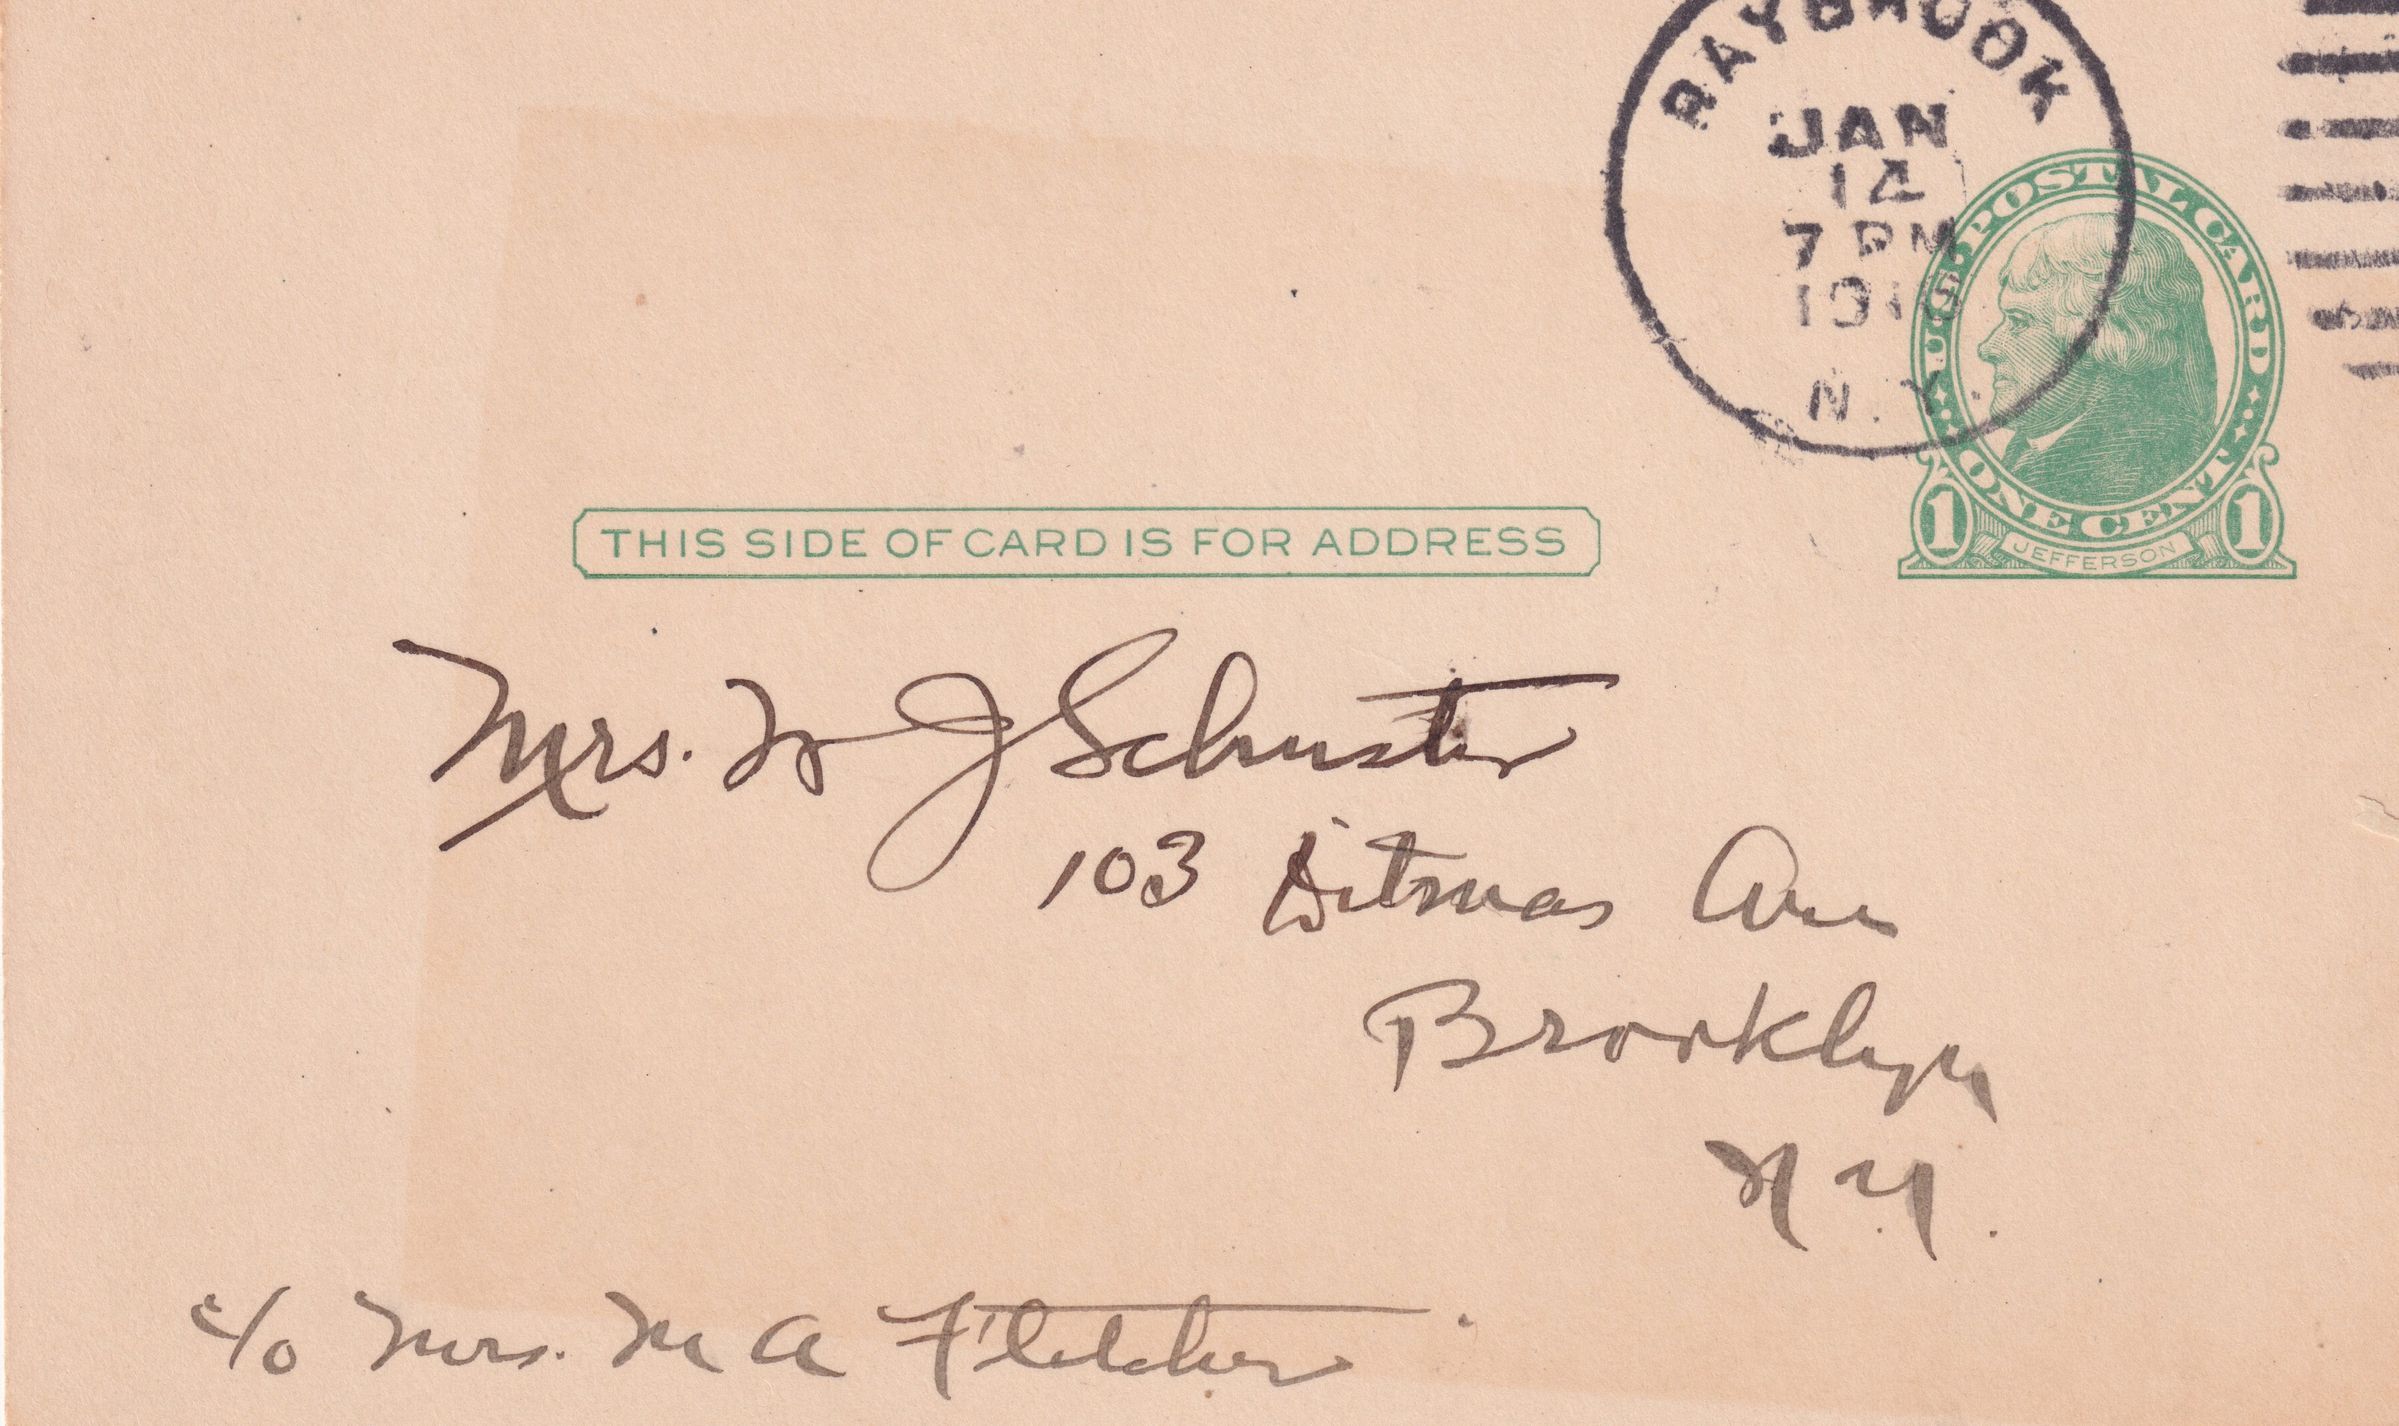 RAYBROOK
JAN
14
7 PM
N.Y.
U.S. POSTAL CARD
ONE CENT
1 1
JEFFERSON
THIS SIDE OF CARD IS FOR ADDRESS
Mrs. W J Schuster
103 Ditmas Ave
Brooklyn
N.Y.
c/o Mrs. M A Fletcher.